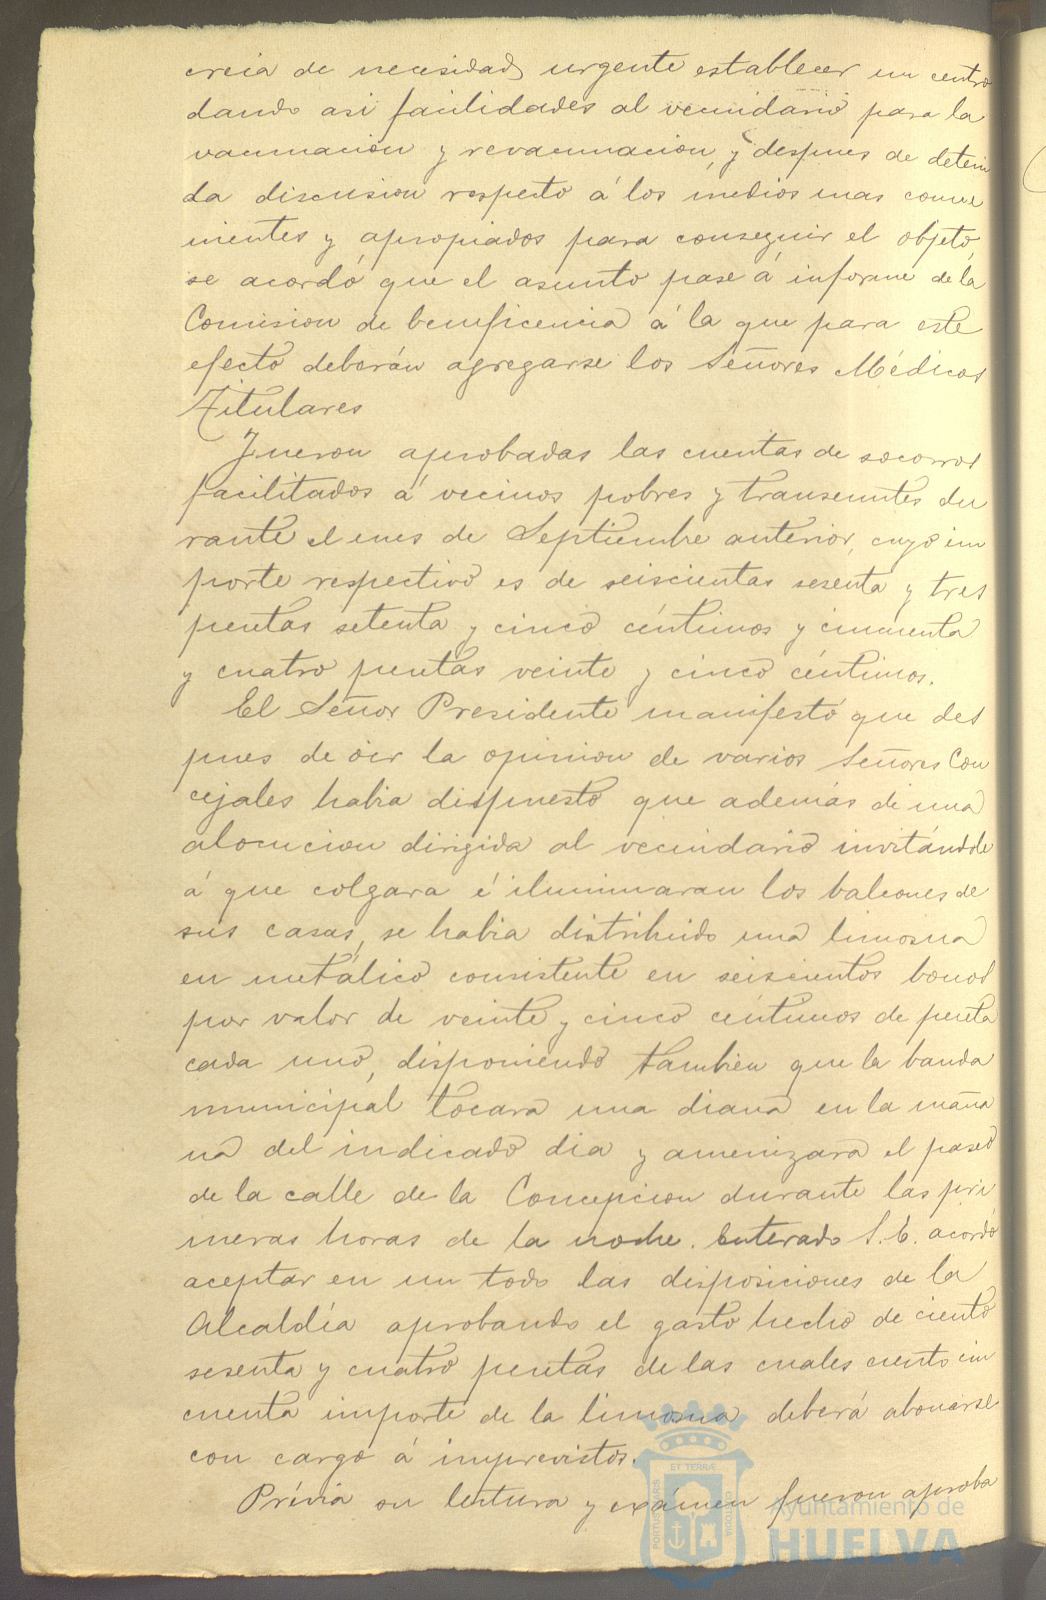 creia de necesidad urgente establecer un centro
dando asi facilidades al vecindario para la
vacunacion y revacunacion, y despues de deteni
da discusion respecto á los medios mas conve
nientes y apropiados para conseguir el objeto,
se acordó que el asunto pase á informe de la
Comision de beneficencia á la que para este
efecto deberán agregarse los Señores Médicos
Titulares
Fueron aprobadas las cuentas de socorros
facilitados á vecinos pobres y transeuntes du
rante el mes de Septiembre anterior, cuyo im
porte respectivo es de seiscientas sesenta y tres
pesetas setenta y cinco céntimos y cincuenta
y cuatro pesetas veinte y cinco céntimos.
El Señor Presidente manifestó que des
pues de oir la opinion de varios Señores Con
cejales habia dispuesto que además de una
alocucion dirigida al vecindario invitándole
á que colgara é iluminaran los balcones de
sus casas, se habia distribuido una limosna
en metálico consistente en seiscientos bonos
por valor de veinte y cinco céntimos de peseta
cada uno, disponiendo tambien que la banda
municipal tocara una diana en la maña
na del indicado dia y amenizara el paseo
de la calle de la Concepcion durante las pri
meras horas de la noche. Enterado S.E. acordó
aceptar en un todo las disposiciones de la
Alcaldía aprobando el gasto hecho de ciento
sesenta y cuatro pesetas de las cuales ciento cin
cuenta importe de la limosna deberá abonarse
con cargo á imprevistos.
Prévia su lectura y exámen fueron aproba
ET TERRÆ
PORTUS MARIS
CUSTODIA
Ayuntamiento de
HUELVA